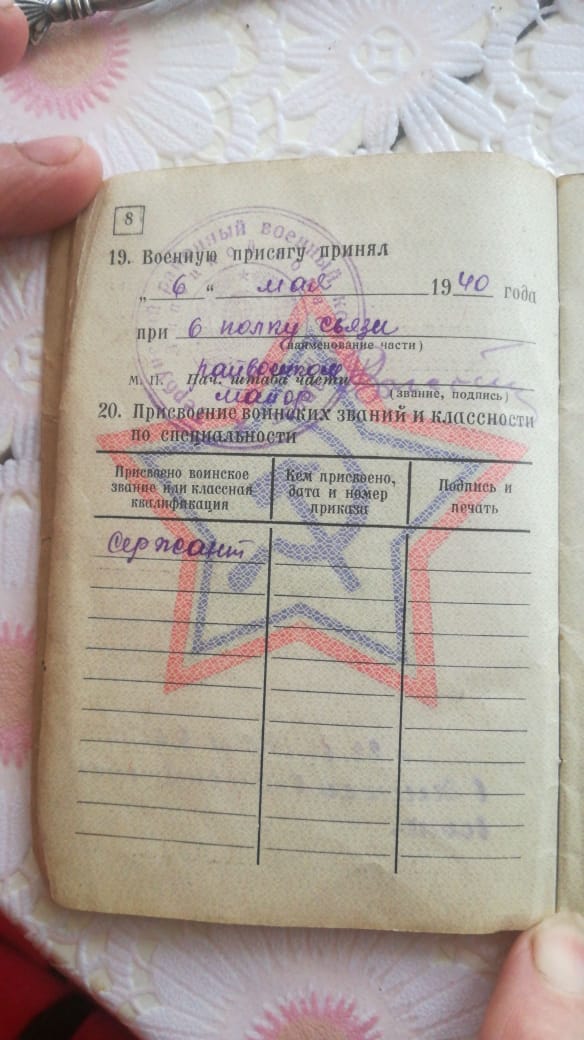 8
19. Военную присягу принял
„ 6 “ мая 1940 года
при 6 полку связи
(наименование части)
райвоенком
М. П. Нач. штаба части
майор (звание, подпись)
20. Присвоение воинских званий и классности
по специальности
Присвоено воинское звание или классная квалификация
Кем присвоено, дата и номер приказа
Подпись и печать
Сержант